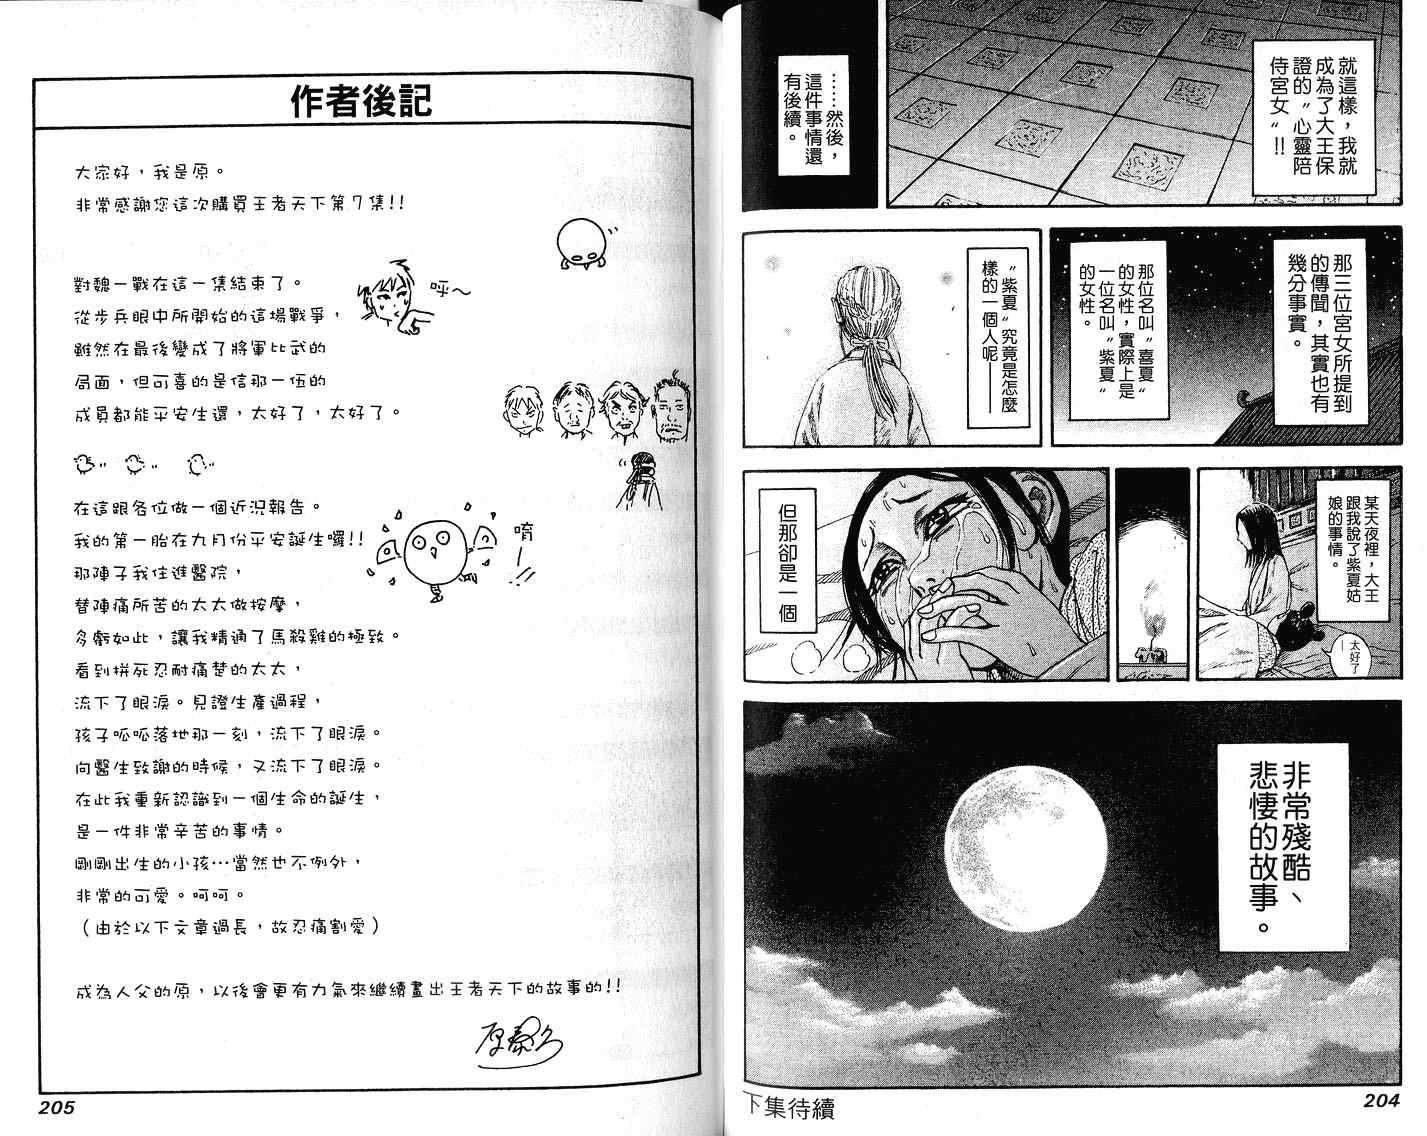 就這樣，我就
成為了大王保
證的〝心靈陪
侍宮女〞!!
……然後，
這件事情還
有後續。
那三位宮女所提到
的傳聞，其實也有
幾分事實。
那位名叫〝喜夏〞
的女性，實際上是
一位名叫〝紫夏〞
的女性。
〝紫夏〞究竟是怎麼
樣的一個人呢——
某天夜裡，大王
跟我說了紫夏姑
娘的事情。
太好了—
但那卻是一個
非常殘酷、
悲悽的故事。
下集待續
204
作者後記
大家好，我是原。
非常感謝您這次購買王者天下第7集!!
對魏一戰在這一集結束了。
呼～
從步兵眼中所開始的這場戰爭，
雖然在最後變成了將軍比武的
局面，但可喜的是信那一伍的
成員都能平安生還，太好了，太好了。
在這跟各位做一個近況報告。
我的第一胎在九月份平安誕生囉!!
唷—!!
那陣子我住進醫院，
替陣痛所苦的太太做按摩，
多虧如此，讓我精通了馬殺雞的極致。
看到拼死忍耐痛楚的太太，
流下了眼淚。見證生產過程，
孩子呱呱落地那一刻，流下了眼淚。
向醫生致謝的時候，又流下了眼淚。
在此我重新認識到一個生命的誕生，
是一件非常辛苦的事情。
剛剛出生的小孩…當然也不例外，
非常的可愛。呵呵。
（由於以下文章過長，故忍痛割愛）
成為人父的原，以後會更有力氣來繼續畫出王者天下的故事的!!
原泰久
205